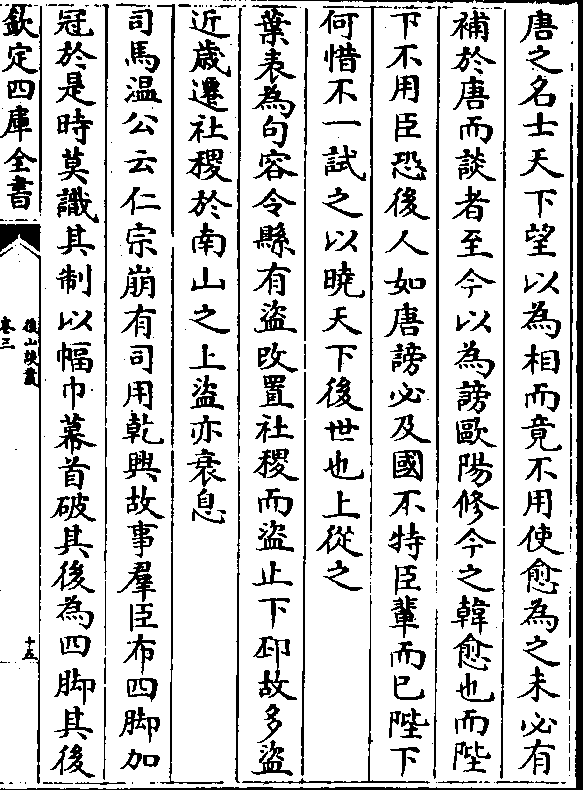 唐之名士天下望以為相而竟不用使愈為之未必有
補於唐而談者至今以為謗歐陽修今之韓愈也而陛
下不用臣恐後人如唐謗必及國不特臣輩而已陛下
何惜不一試之以曉天下後世也上從之
葉表為句容令縣有盜改置社稷而盜止下邳故多盜
近歲遷社稷於南山之上盜亦衰息
司馬温公云仁宗崩有司用乾興故事羣臣布四脚加
冠於是時莫識其制以幅巾幕首破其後為四脚其後
欽定四庫全書
後山談叢
卷三
十五